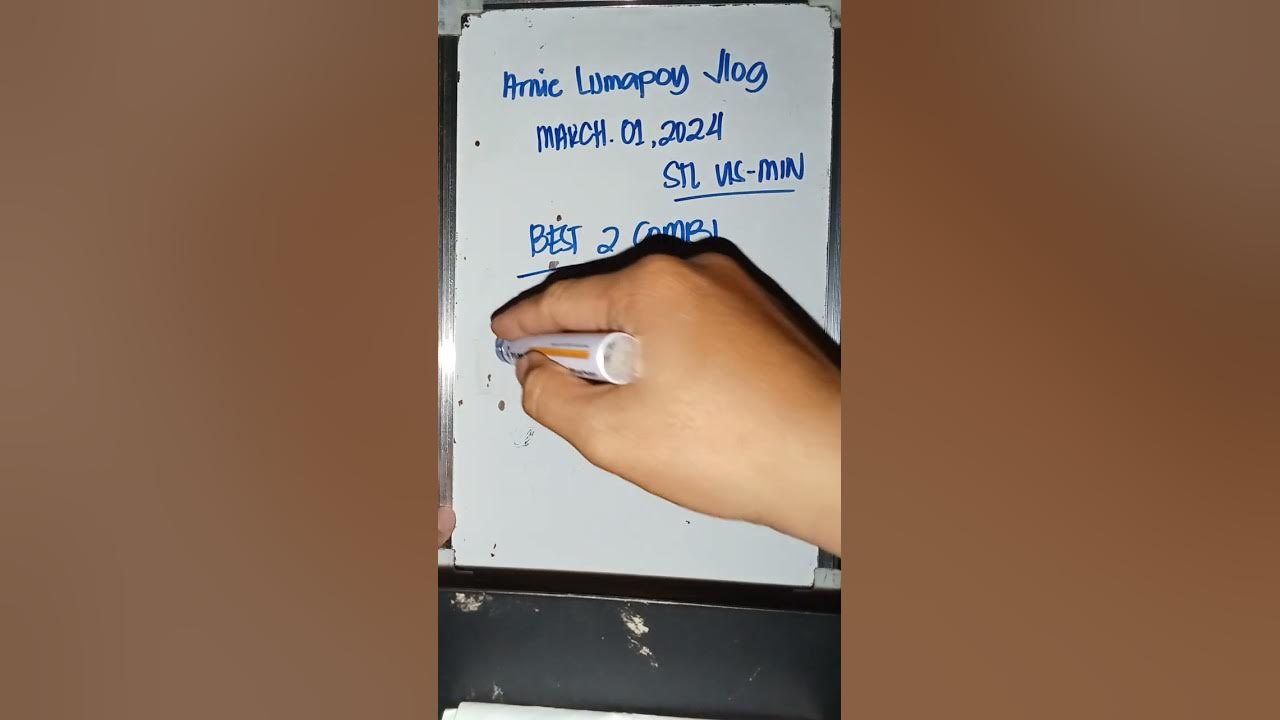 Arnie Lumapoy Vlog
MARCH. 01, 2024
STL VIS-MIN
BEST 2 COMBI